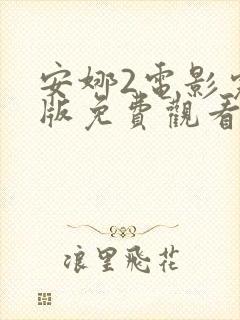 安娜2電影
版免費觀看
浪里飛花